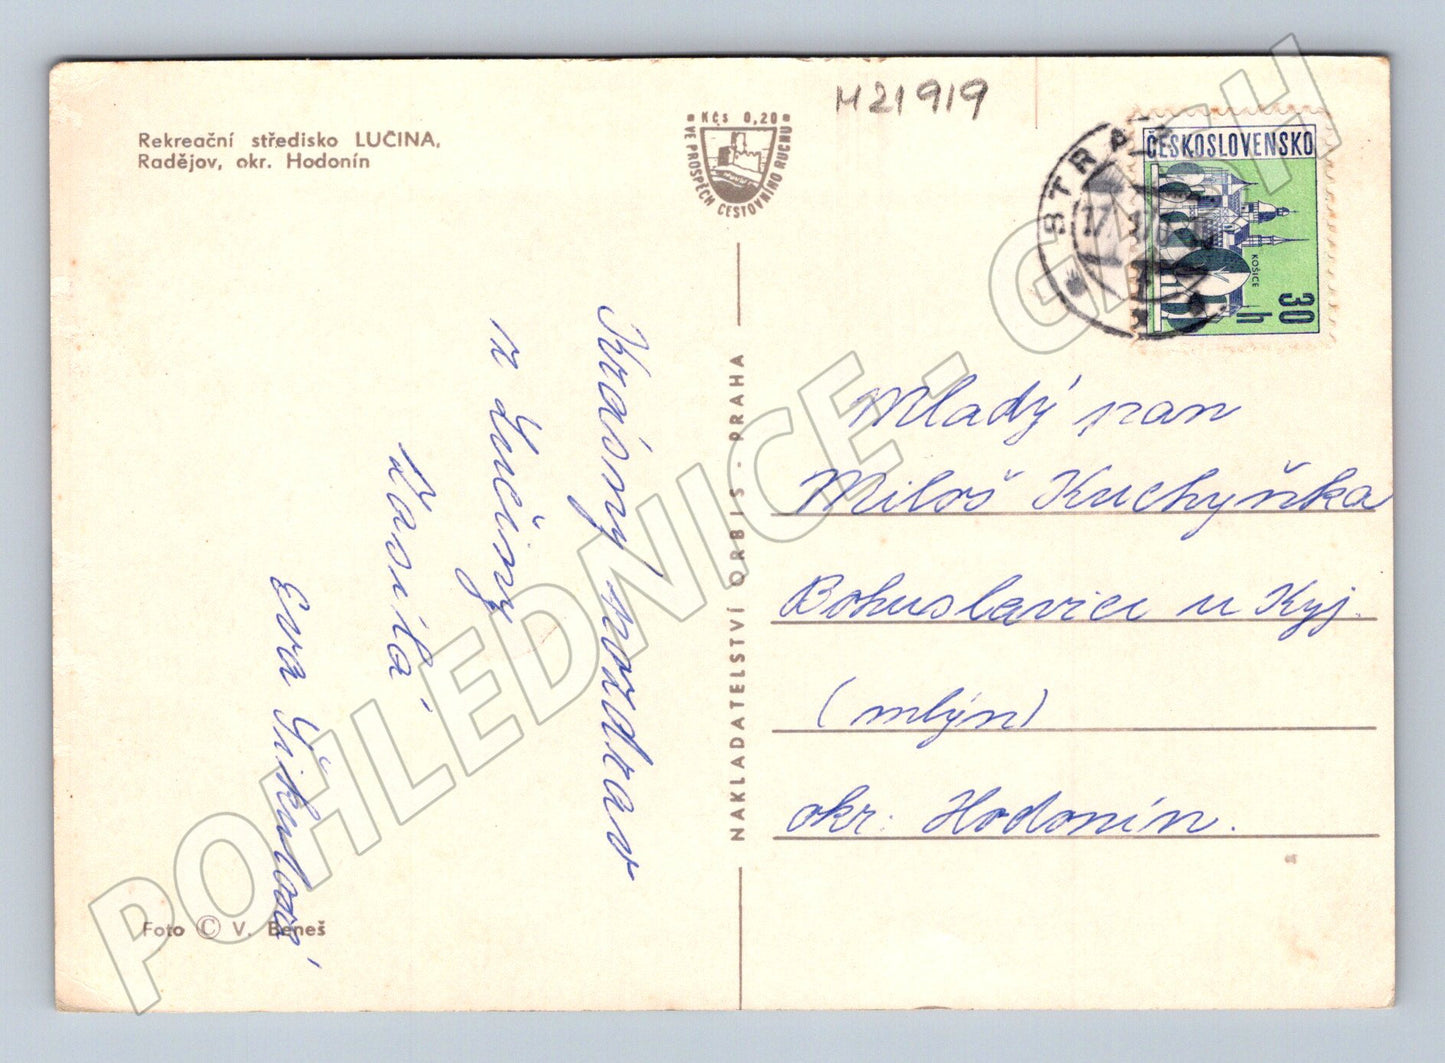 Rekreační středisko LUČINA,
Radějov, okr. Hodonín
Kčs 0,20
VE PROSPĚCH CESTOVNÍHO RUCHU
M21919
STRÁ
17.
ČESKOSLOVENSKO
KOŠICE
30
h
Krásný pozdrav
z Lučiny
zasílá
Eva
NAKLADATELSTVÍ ORBIS - PRAHA
Mladý pan
Miloš Kuchyňka
Bohuslavice u Kyj.
(mlýn)
okr. Hodonín.
Foto © V. Beneš
POHLEDNICE - GASH